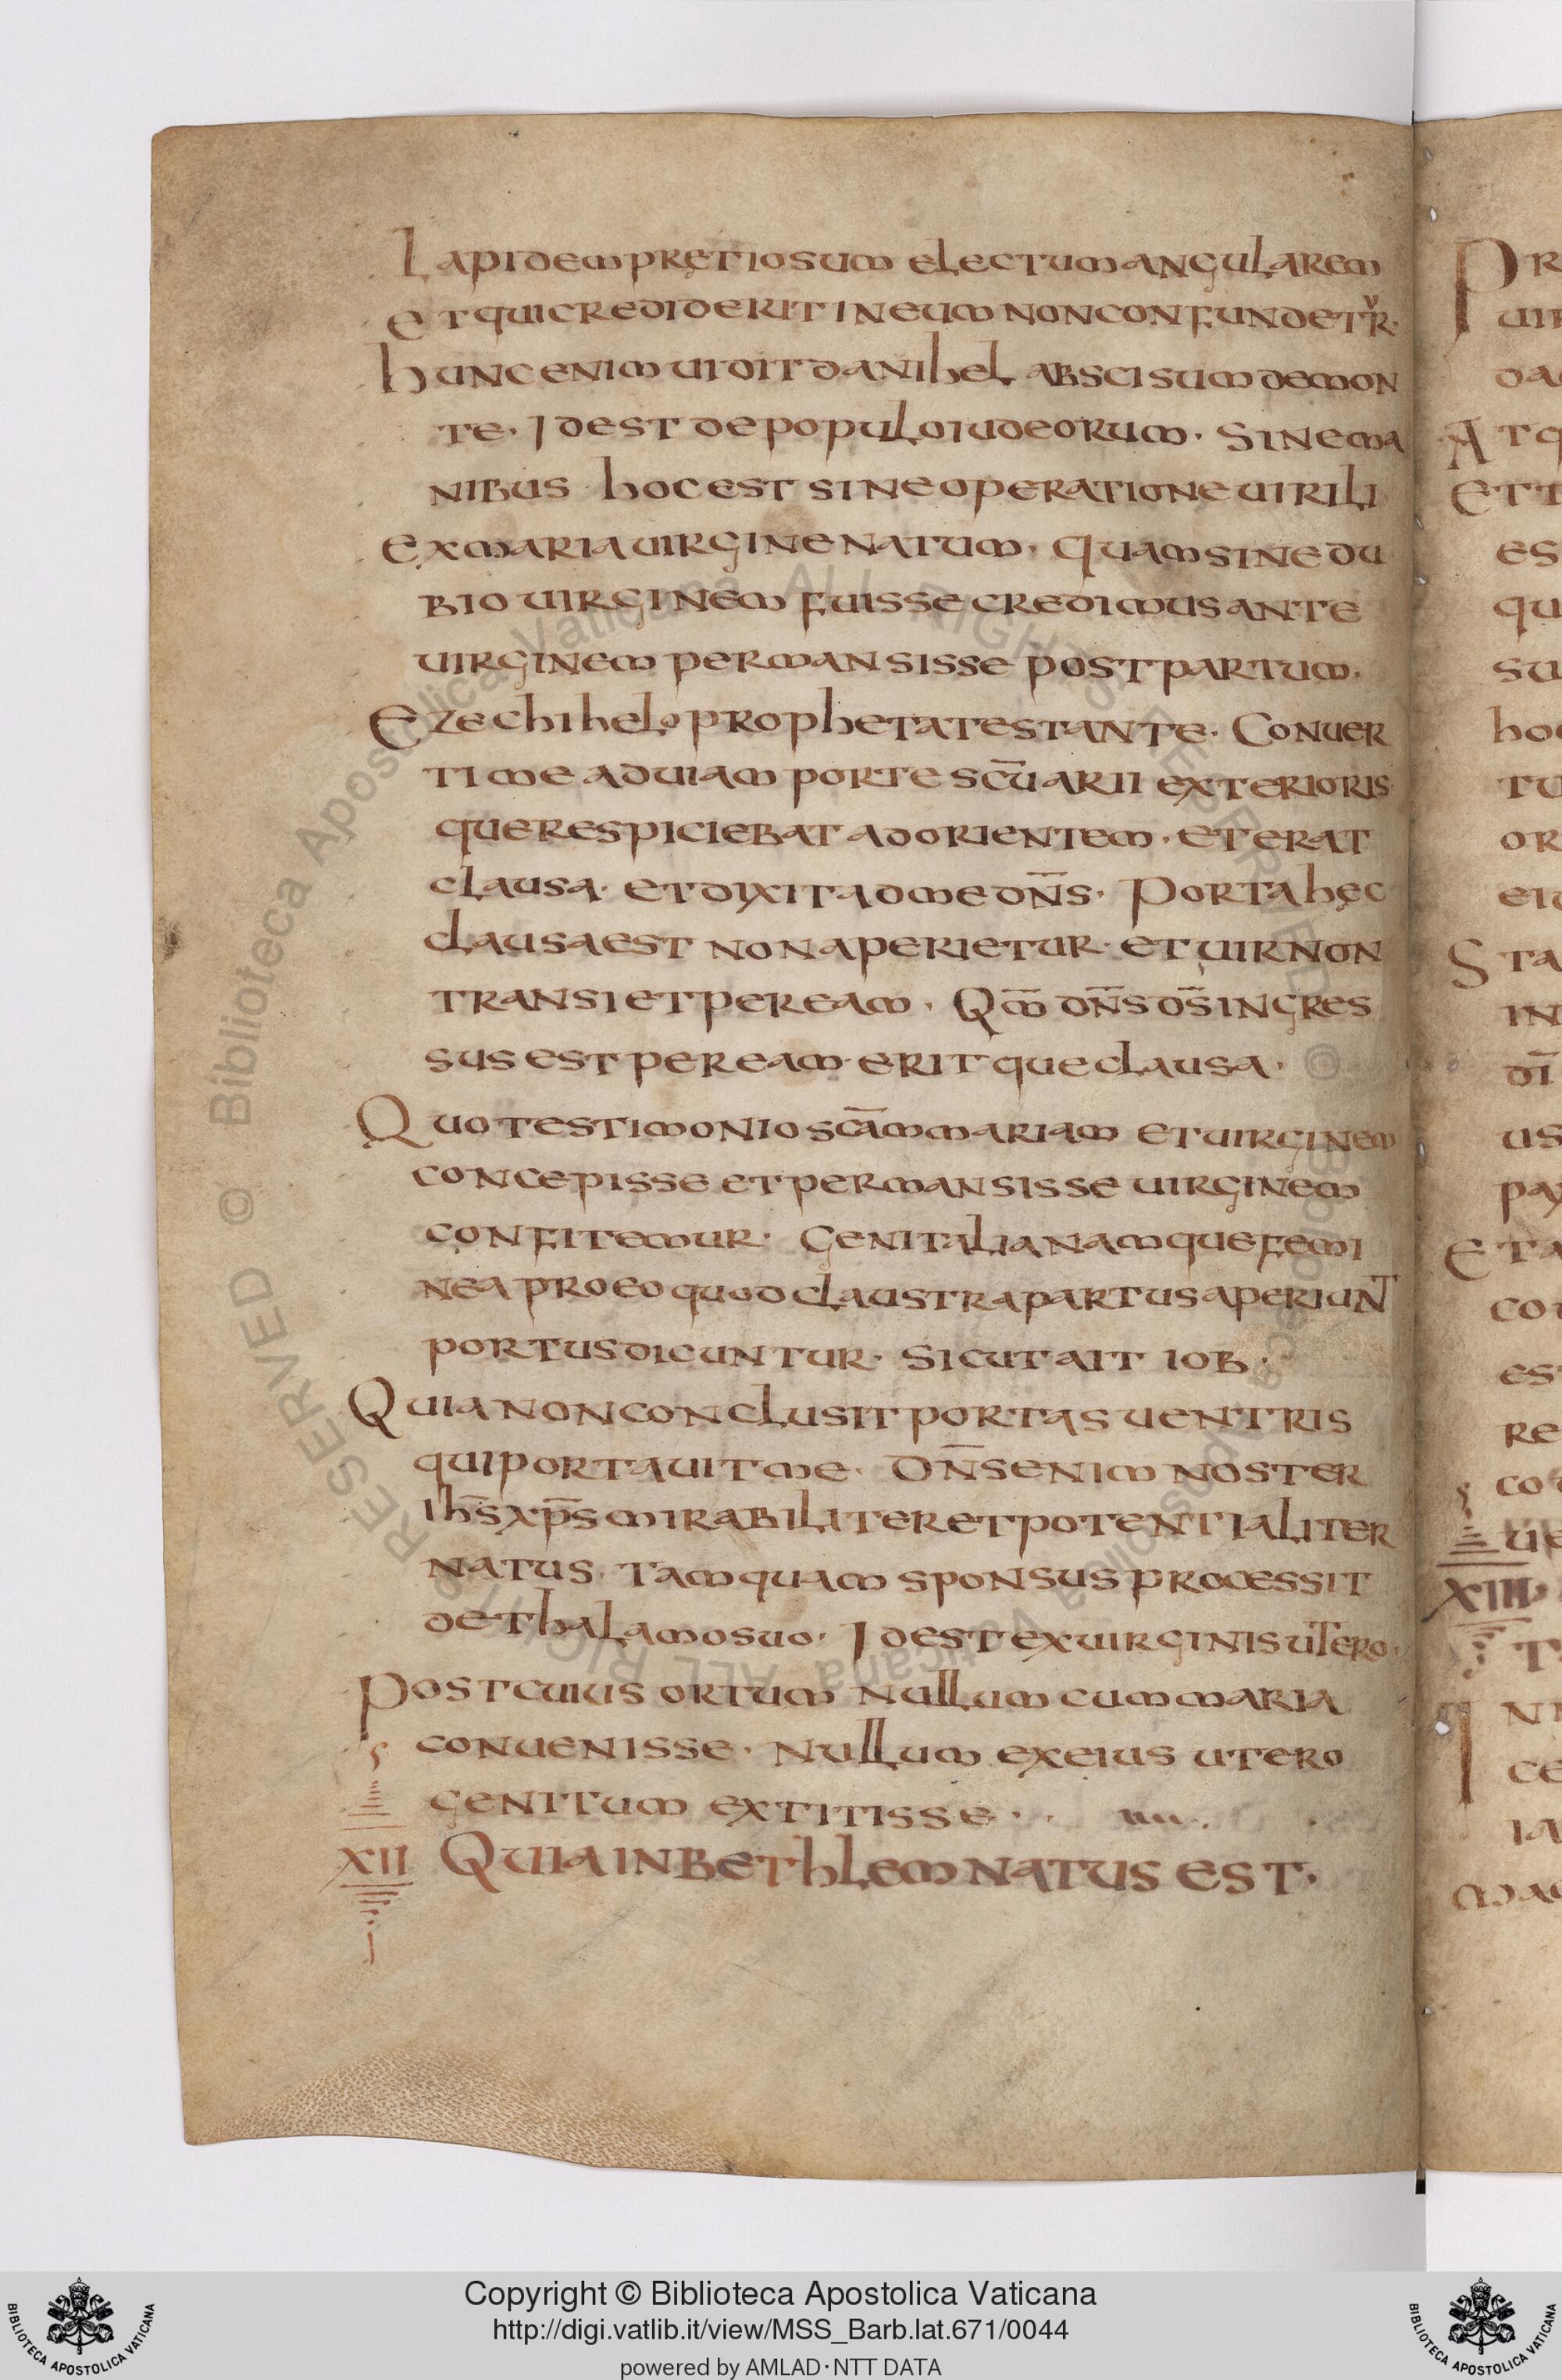 Lapidem pretiosum electum angularem
et qui crediderit in eum non confundetur·
hunc enim uidit danihel abscisum demon
te· Idest de populo iudeorum· Sinema
nibus hoc est sine operatione uirili
ex maria uirgine natum· quam sine du
bio uirginem fuisse credimus ante
uirginem permansisse post partum·
Ezechihelo propheta testante· Conuer
ti me ad uiam porte sc̄uarii exterioris
que respiciebat ad orientem· et erat
clausa· et dixit ad me dn̄s· Porta hęc
clausa est non aperietur· et uir non
transiet pe͛ eam· Qm̄ dn̄s ds̄ ingres
sus est pe͛ eam· eritque clausa·
Quo testimonio sc̄am mariam et uirginem
concepisse et permansisse uirginem
confitemur· Genitalia namque femi
nea pro eo quod claustra partus aperiunt
portus dicuntur· sicut ait iob·
Quia non conclusit portas uentris
qui portauit me· Dn̄s enim noster
ihs̄ xp̄s mirabiliter et potentialiter
natus· Tamquam sponsus processit
de thalamo suo· Idest ex uirginis utero·
Post cuius ortum nullum cum maria
conuenisse· Nullum ex eius utero
genitum extitisse·
XII Quia in bethlem natus est·
Copyright © Biblioteca Apostolica Vaticana
http://digi.vatlib.it/view/MSS_Barb.lat.671/0044
powered by AMLAD·NTT DATA
BIBLIOTECA APOSTOLICA VATICANA
BIBLIOTECA APOSTOLICA VATICANA